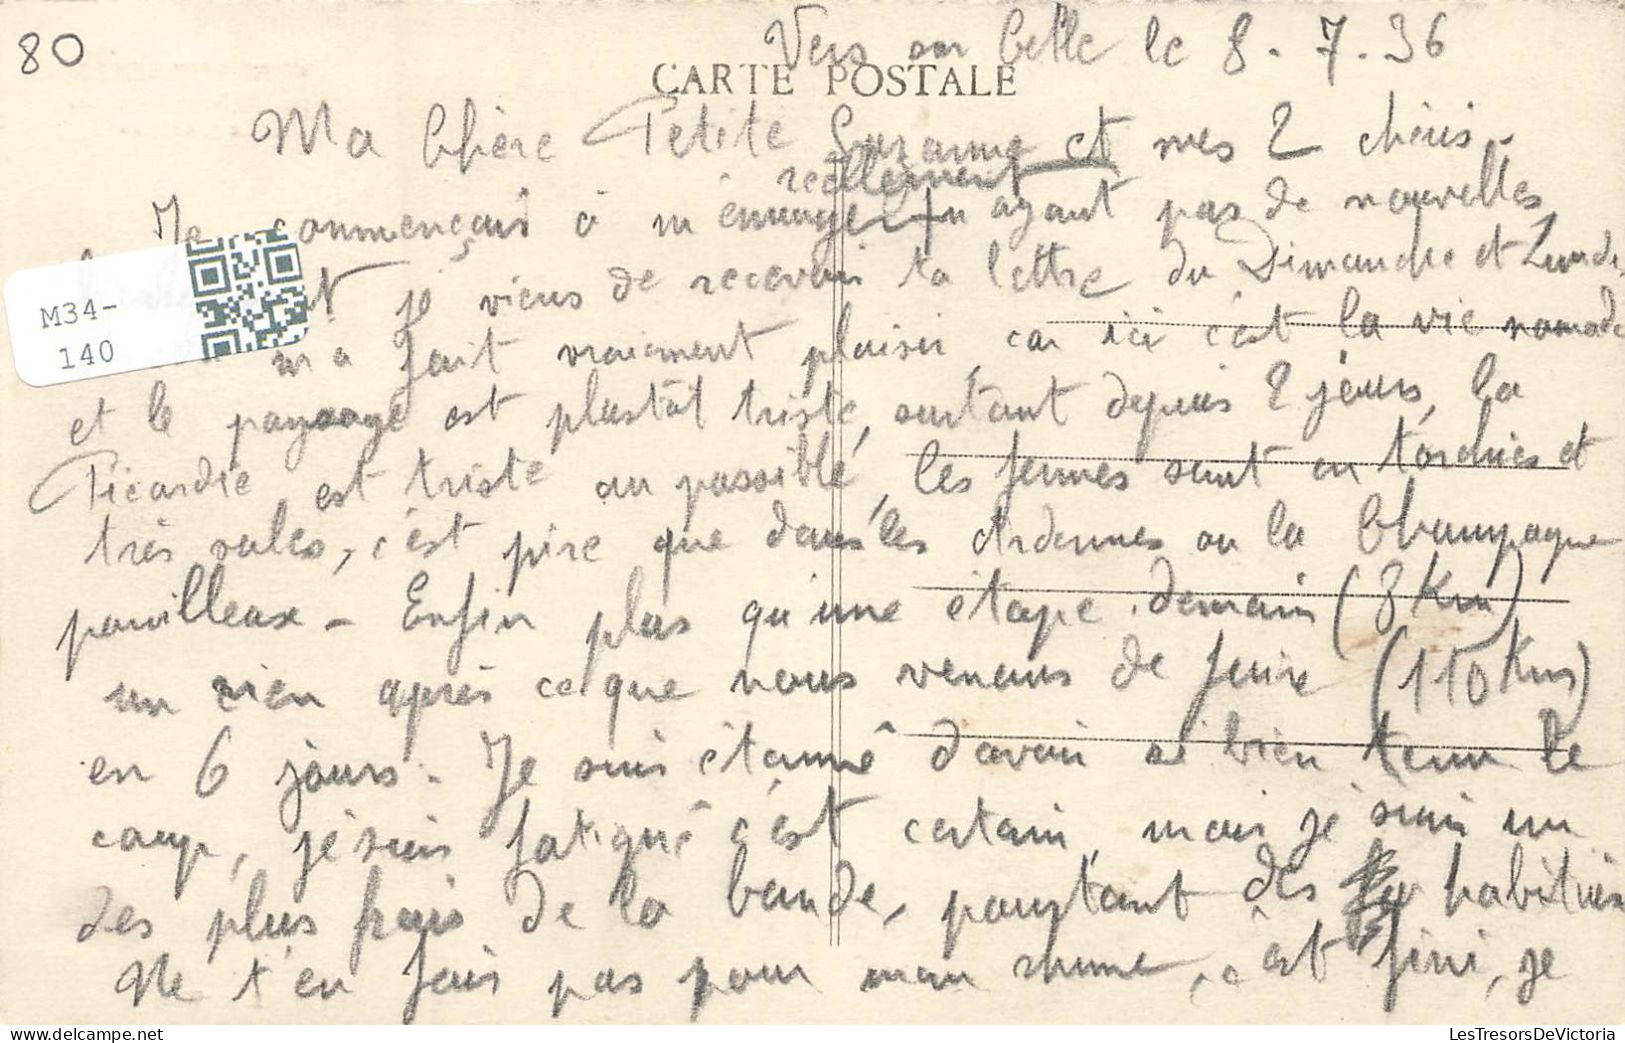 80
Vers sur Celle le 8.7.36
CARTE POSTALE
Ma Chère Petite Suzanne et mes 2 chéris -
réellement
Je commençais à m'ennuyer n'ayant pas de nouvelles
je viens de recevoir ta lettre du Dimanche et Lundi,
M34-
140
m'a fait vraiment plaisir, car ici c'est la vie nomade
et le paysage est plutôt triste, surtout depuis 2 jours, la
Picardie est triste au possible, les fermes sont en torchies et
très sales, c'est pire que dans les Ardennes ou la Champagne
pouilleuse - Enfin plus qu'une étape demain (8 Km)
un rien après ce que nous venons de faire (110 Kms)
en 6 jours. Je suis étonné d'avoir si bien tenu le
coup, je suis fatigué c'est certain, mais je suis un
des plus frais de la bande, pourtant des habitués
Ne t'en fais pas pour mon rhume, c'est fini, je
LesTresorsDeVictoria